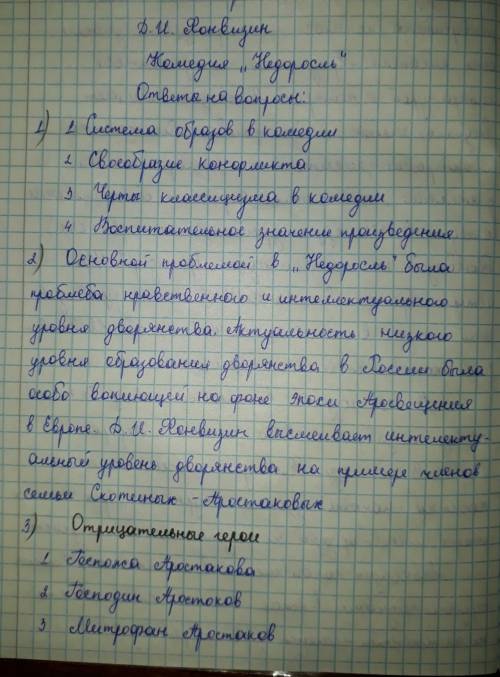 Д.И. Фонвизин
Комедия „Недоросль"
Ответы на вопросы:
1) 1 Система образов в комедии
2 Свообразие конфликта
3 Черты классицизма в комедии
4 Воспитательное значение произведения
2) Основной проблемой в „Недоросль" была
проблеба нравственного и интеллектуального
уровня дворянства. Актуальность низкого
уровня образования дворянства в России была
особо вопиющей на фоне эпохи Просвещения
в Европе. Д.И. Фонвизин высмеивает интелекту-
альный уровень дворянства на примере членов
семьи Скотиных - Простаковых
3) Отрицательные герои
1 Госпожа Простакова
2 Господин Простоков
3 Митрофан Простаков